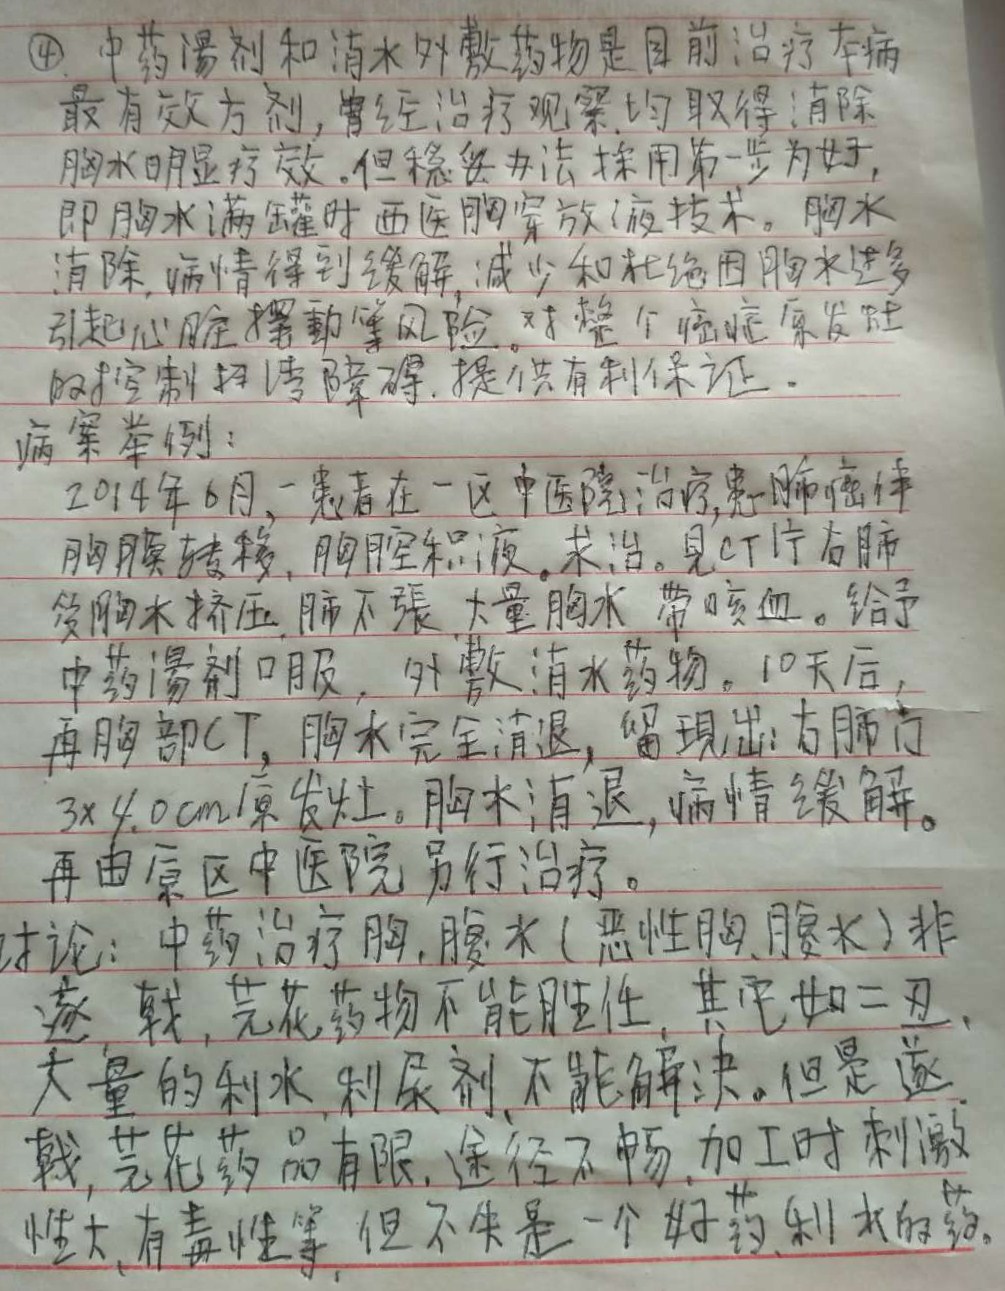 ④、中药湯剂和消水外敷药物是目前治疗本病
最有效方剂，曾经治疗观察，均取得消除
胸水明显疗效。但稳妥办法採用第一步为好，
即胸水满罐时西医胸穿放液技术。胸水
消除，病情得到緩解，减少和杜绝因胸水过多
引起心脏擺動等风险。对整个癌症原发灶
的控制扫清障碍，提供有利保证。
病案举例：
2014年6月，一患者在一区中医院治疗，患肺癌伴
胸膜转移，胸腔积液。求治。见CT片右肺
受胸水挤压，肺不張，大量胸水，带咳血。给予
中药湯剤口服，外敷消水药物。10天后，
再胸部CT，胸水完全消退，留現出：右肺门
3x4.0cm原发灶。胸水消退，病情緩解。
再由原区中医院另行治疗。
讨论：中药治疗胸，腹水（恶性胸、腹水）非
遂，戟，芫花药物不能胜任，其它如二丑、
大量的利水，利尿剂，不能解决。但是遂，
戟，芫花药品有限，途径不畅，加工时刺激
性大，有毒性等，但不失是一个好药，利水的药。